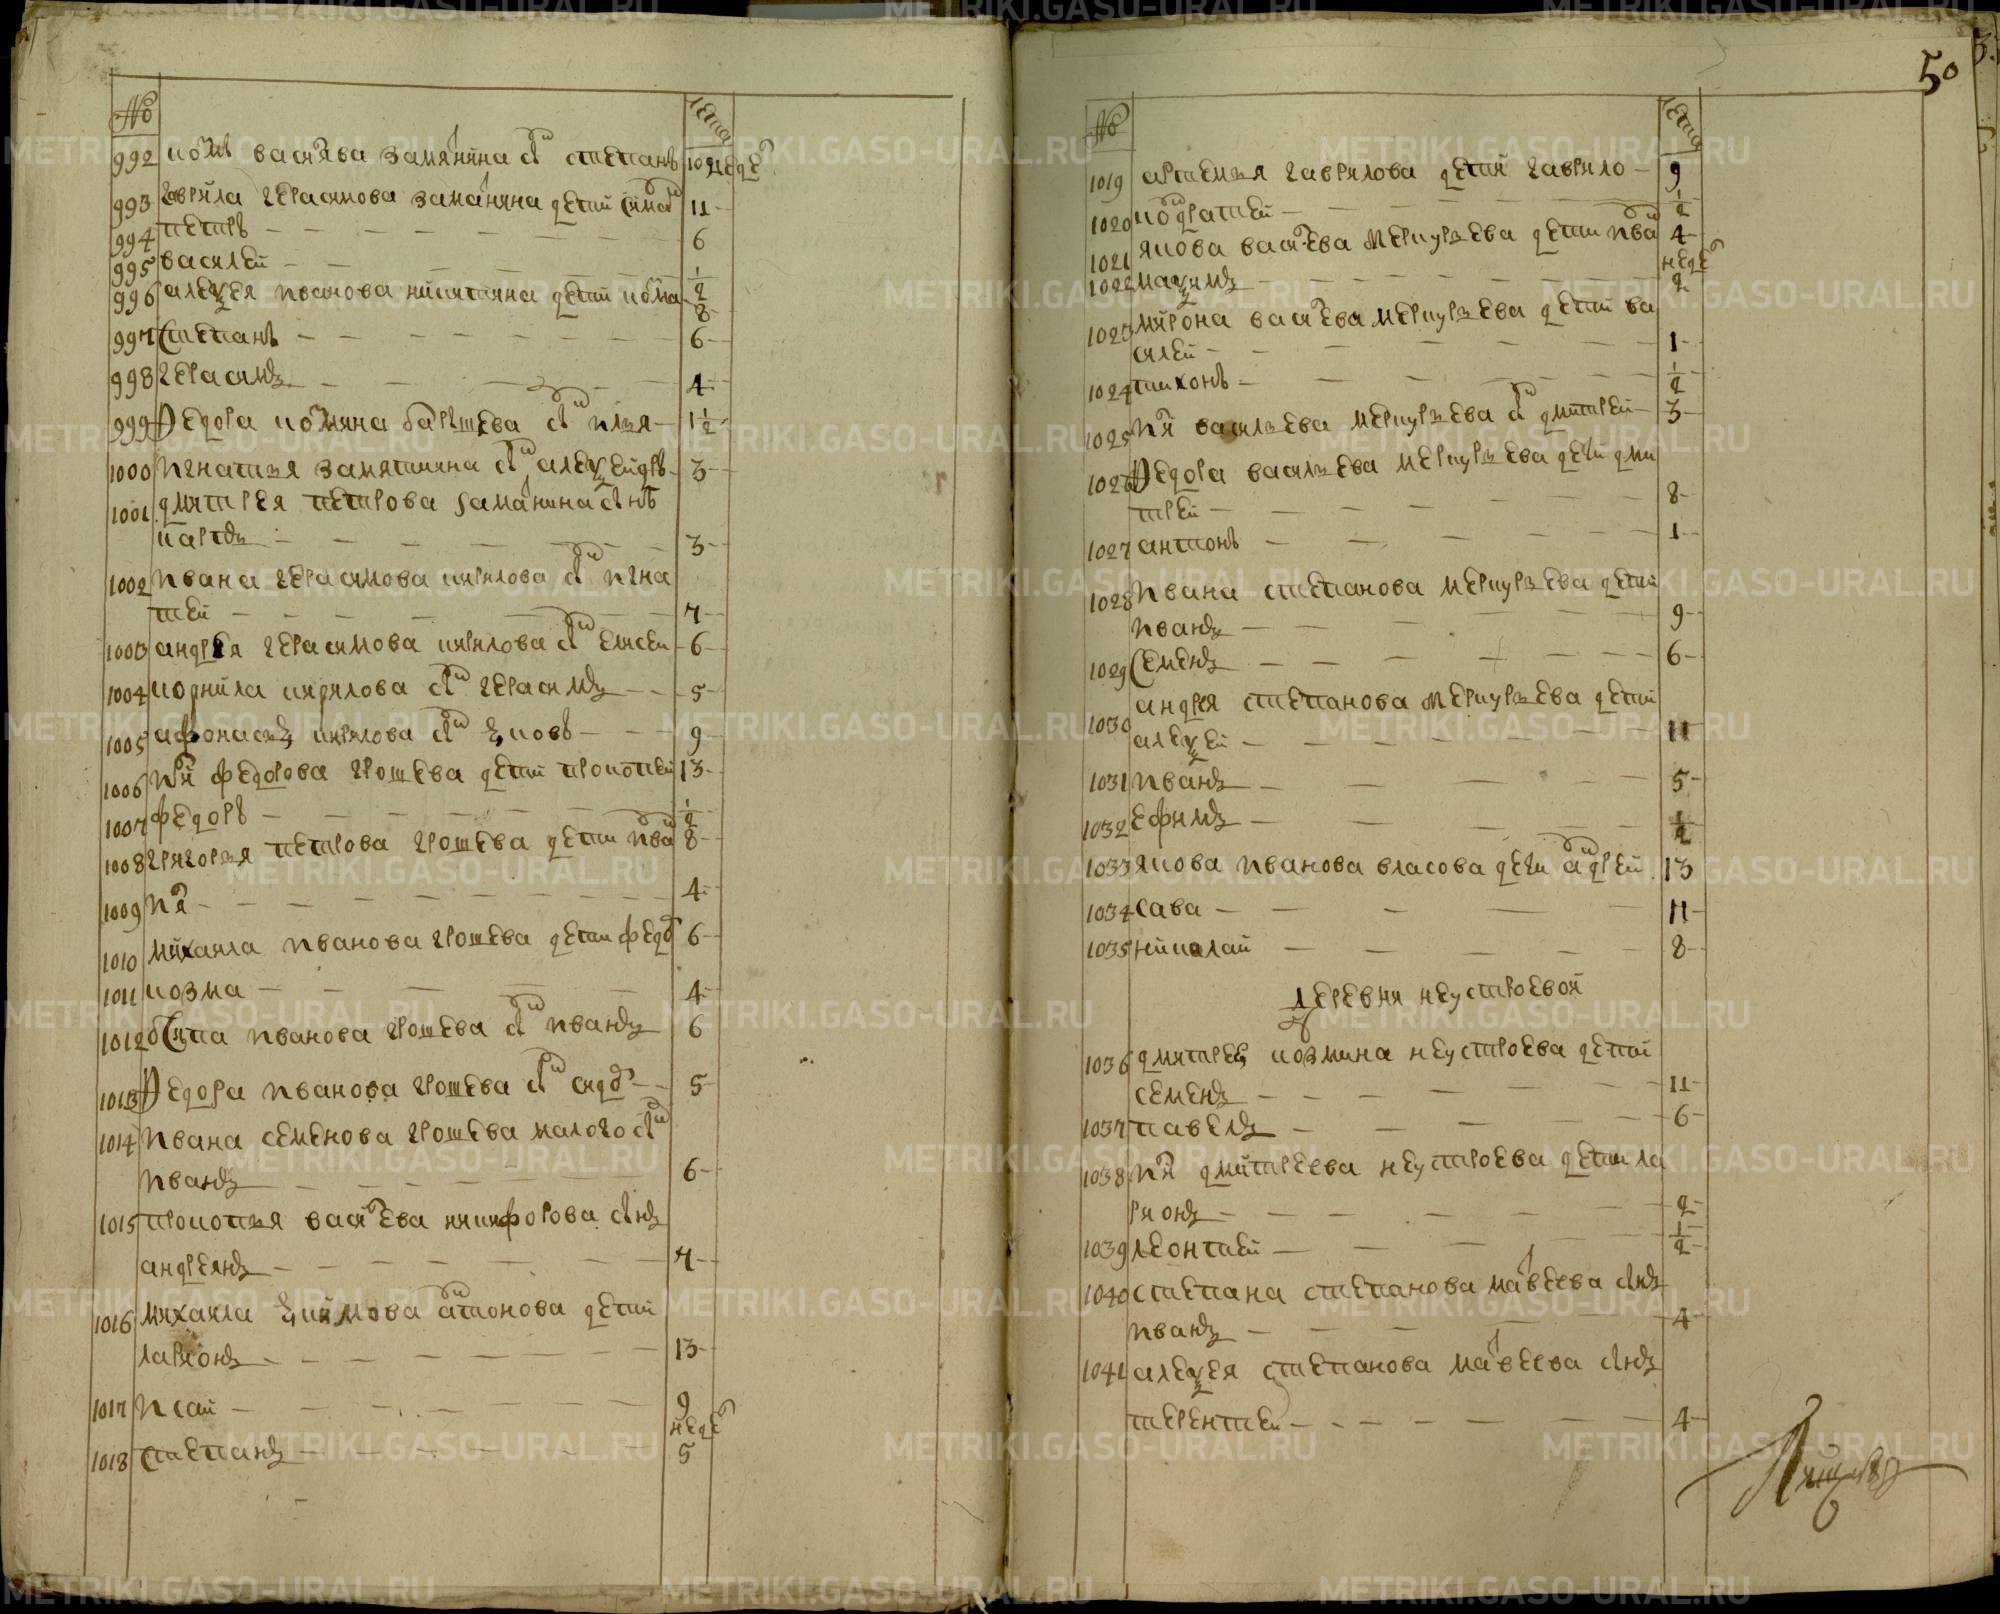 № лета
992 васильева замятнина сн степанъ 10 неде
993 гаврила герасимова замятнина дети сима 11
994 петръ 6
995 василей 1/2
996 алексея иванова никитина дети козма 8
997 степанъ 6
998 герасимъ 4
999 федора козмина сн илья 1 1/2
1000 игнатья замятнина сн алексендръ 3
1001 дмитрея петрова замятнина снъ
карпъ 3
1002 ивана герасимова кирилова сн игна
теи 7
1003 андрея герасимова кирилова сн елисеи 6
1004 корнила кирилова сн герасимъ 5
1005 афонасья кирилова сн 9
1006 федорова грошева дети прокопеи 13
1007 федоръ 1/2
1008 григорья петрова грошева дети ива 8
1009 4
1010 михаила иванова грошева дети федо 6
1011 козма 4
1012 осипа иванова грошева сн иванъ 6
1013 федора иванова грошева сн сидо 5
1014 ивана семенова грошева малого сн
иванъ 6
1015 прокопья васильева никифорова снъ
андреянъ 7
1016 михаила екимова антонова дети
ларионъ 13
1017 исаи 9
неде
1018 степанъ 5
50
№ лета
1019 артемья гаврилова дети гаврило 9
1020 кондратеи 1/2
1021 якова васильева меркурьева дети ива 4
неде
1022 максимъ 2
1023 мирона васильева меркурьева дети ва
силеи 1
1024 тихонъ 1/2
1025 васильева меркурьева сн дмитреи 3
1026 федора васильева меркурьева дети дми
треи 8
1027 антонъ 1
1028 ивана степанова меркурьева дети
иванъ 9
1029 семенъ 6
1030 андрея степанова меркурьева дети
алексеи 11
1031 иванъ 5
1032 ефимъ 1/2
1033 якова иванова власова дети андреи 13
1034 сава 11
1035 николаи 8
деревня неустроевой
1036 дмитрея козмина неустроева дети
семенъ 11
1037 павелъ 6
1038 дмитреева неустроева дети ла
рионъ 2
1039 леонтеи 1/2
1040 степана степанова матвеева снъ
иванъ 4
1041 алексея степанова матвеева снъ
терентеи 4
METRIKI.GASO-URAL.RU